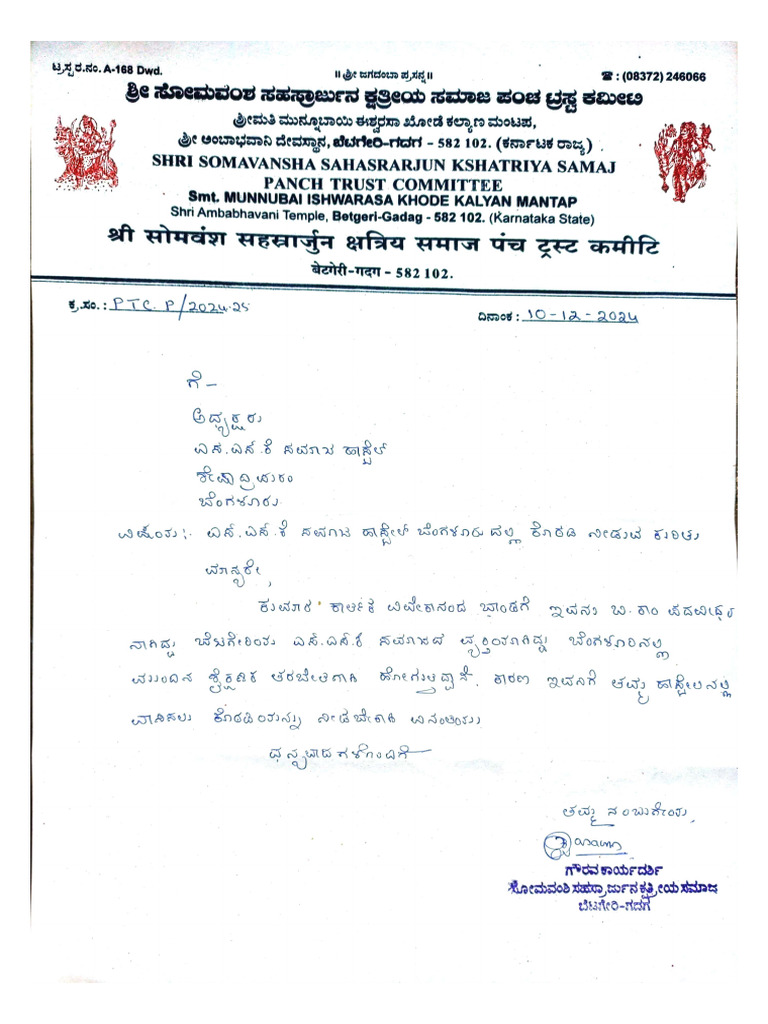 ಟ್ರಸ್ಟ ರ.ನಂ. A-168 Dwd.
॥ ಶ್ರೀ ಜಗದಂಬಾ ಪ್ರಸನ್ನ ॥
☎ : (08372) 246066
ಶ್ರೀ ಸೋಮವಂಶ ಸಹಸ್ರಾರ್ಜುನ ಕ್ಷತ್ರೀಯ ಸಮಾಜ ಪಂಚ ಟ್ರಸ್ಟ ಕಮೀಟಿ
ಶ್ರೀಮತಿ ಮುನ್ನೂಬಾಯಿ ಈಶ್ವರಸಾ ಖೋಡೆ ಕಲ್ಯಾಣ ಮಂಟಪ,
ಶ್ರೀ ಅಂಬಾಭವಾನಿ ದೇವಸ್ಥಾನ, ಬೆಟಗೇರಿ-ಗದಗ - 582 102. (ಕರ್ನಾಟಕ ರಾಜ್ಯ)
SHRI SOMAVANSHA SAHASRARJUN KSHATRIYA SAMAJ
PANCH TRUST COMMITTEE
Smt. MUNNUBAI ISHWARASA KHODE KALYAN MANTAP
Shri Ambabhavani Temple, Betgeri-Gadag - 582 102. (Karnataka State)
श्री सोमवंश सहस्रार्जुन क्षत्रिय समाज पंच ट्रस्ट कमीटि
बेटगेरी-गदग - 582 102.
ಕ್ರ.ಸಂ. : PTC P/2024-25
ದಿನಾಂಕ : 10-12-2024
ಗೆ-
ಅಧ್ಯಕ್ಷರು
ಎಸ.ಎಸ್.ಕೆ ಸಮಾಜ ಹಾಸ್ಟೆಲ್
ಶೇಷಾದ್ರಿಪುರಂ
ಬೆಂಗಳೂರು
ವಿಷಯ:- ಎಸ್.ಎಸ್.ಕೆ ಸಮಾಜ ಹಾಸ್ಟೇಲ್ ಬೆಂಗಳೂರುದಲ್ಲಿ ಕೊಠಡಿ ನೀಡುವ ಕುರಿತು
ಮಾನ್ಯರೇ,
ಕುಮಾರ ಕಾರ್ತಿಕ ವಿವೇಕಾನಂದ ಬಾಂಡಗೆ ಇವನು ಬಿ.ಕಾಂ ಪದವೀಧರ
ನಾಗಿದ್ದು ಬೆಟಗೇರಿಯ ಎಸ್.ಎಸ್.ಕೆ ಸಮಾಜದ ವ್ಯಕ್ತಿಯಾಗಿದ್ದು ಬೆಂಗಳೂರಿನಲ್ಲಿ
ಮುಂದಿನ ಶೈಕ್ಷಣಿಕ ತರಬೇತಿಗಾಗಿ ಹೋಗುತ್ತಿದ್ದಾನೆ. ಕಾರಣ ಇವನಿಗೆ ತಮ್ಮ ಹಾಸ್ಟೇಲನಲ್ಲಿ
ವಾಸಿಸಲು ಕೊಠಡಿಯನ್ನು ನೀಡಬೇಕಾಗಿ ವಿನಂತಿಯು
ಧನ್ಯವಾದಗಳೊಂದಿಗೆ
ತಮ್ಮ ನಂಬುಗೆಯ,
ಗೌರವ ಕಾರ್ಯದರ್ಶಿ
ಸೋಮವಂಶಿ ಸಹಸ್ರಾರ್ಜುನ ಕ್ಷತ್ರೀಯ ಸಮಾಜ
ಬೆಟಗೇರಿ-ಗದಗ